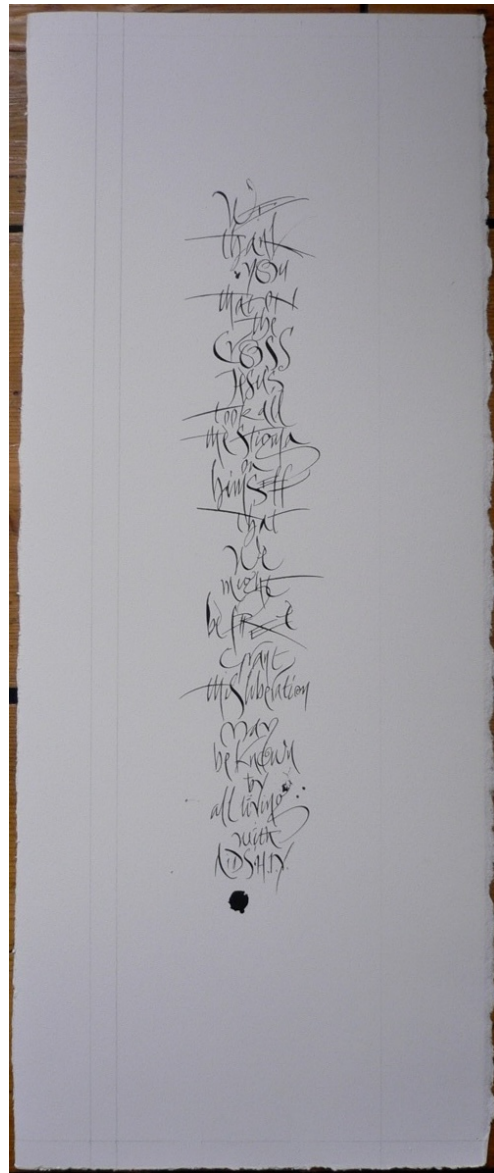 We
thank
you
that on
the
Cross
Jesus
took all
the stigma
on
himself
that
we
might
be free
Grant
this liberation
may
be known
by
all living
with
AIDS·H.I.V.